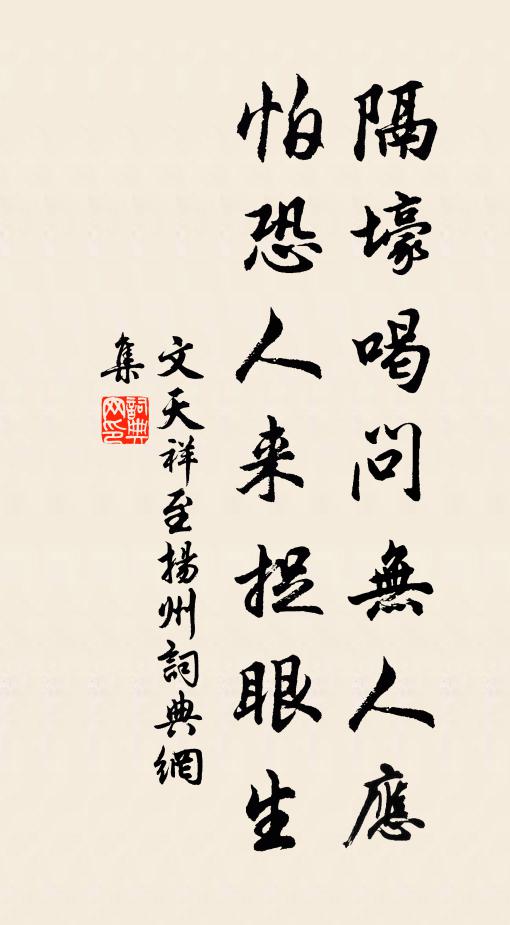 隔壕喝問無人應
怕恐人来捉眼生
文天祥至揚州詞典網
集
詞典
网印